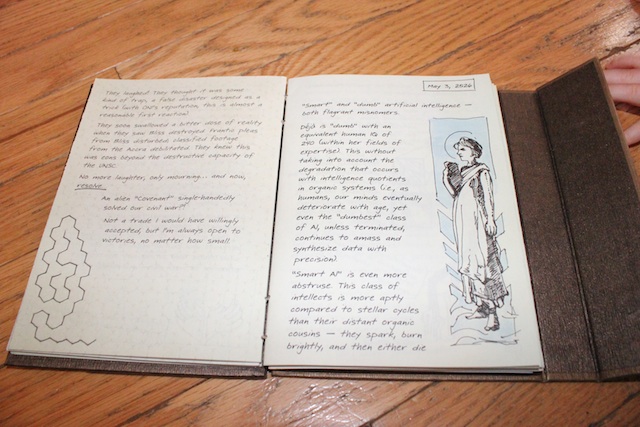 They laughed. They thought it was some
kind of trap, a false disaster designed as a
trick (with ONI's reputation, this is almost a
reasonable first reaction).
They soon swallowed a bitter dose of reality
when they saw Bliss destroyed frantic pleas
from Bliss disturbed classified footage
from the Nova debilitated They knew this
was eons beyond the destructive capacity of
the UNSC.
No more laughter, only mourning... and now,
resolve.
An alien "Covenant" single-handedly
solved our civil war!
Not a trade I would have willingly
accepted, but I'm always open to
victories, no matter how small.
May 3, 2526
"Smart" and "dumb" artificial intelligence —
both flagrant misnomers.
Déjà is "dumb" with an
equivalent human IQ of
240 (within her fields of
expertise). This without
taking into account the
degradation that occurs
with intelligence quotients
in organic systems (i.e., as
humans, our minds eventually
deteriorate with age, yet
even the "dumbest" class
of AI, unless terminated,
continues to amass and
synthesize data with
precision).
"Smart AI" is even more
abstruse. This class of
intellects is more aptly
compared to stellar cycles
than their distant organic
cousins — they spark, burn
brightly, and then either die